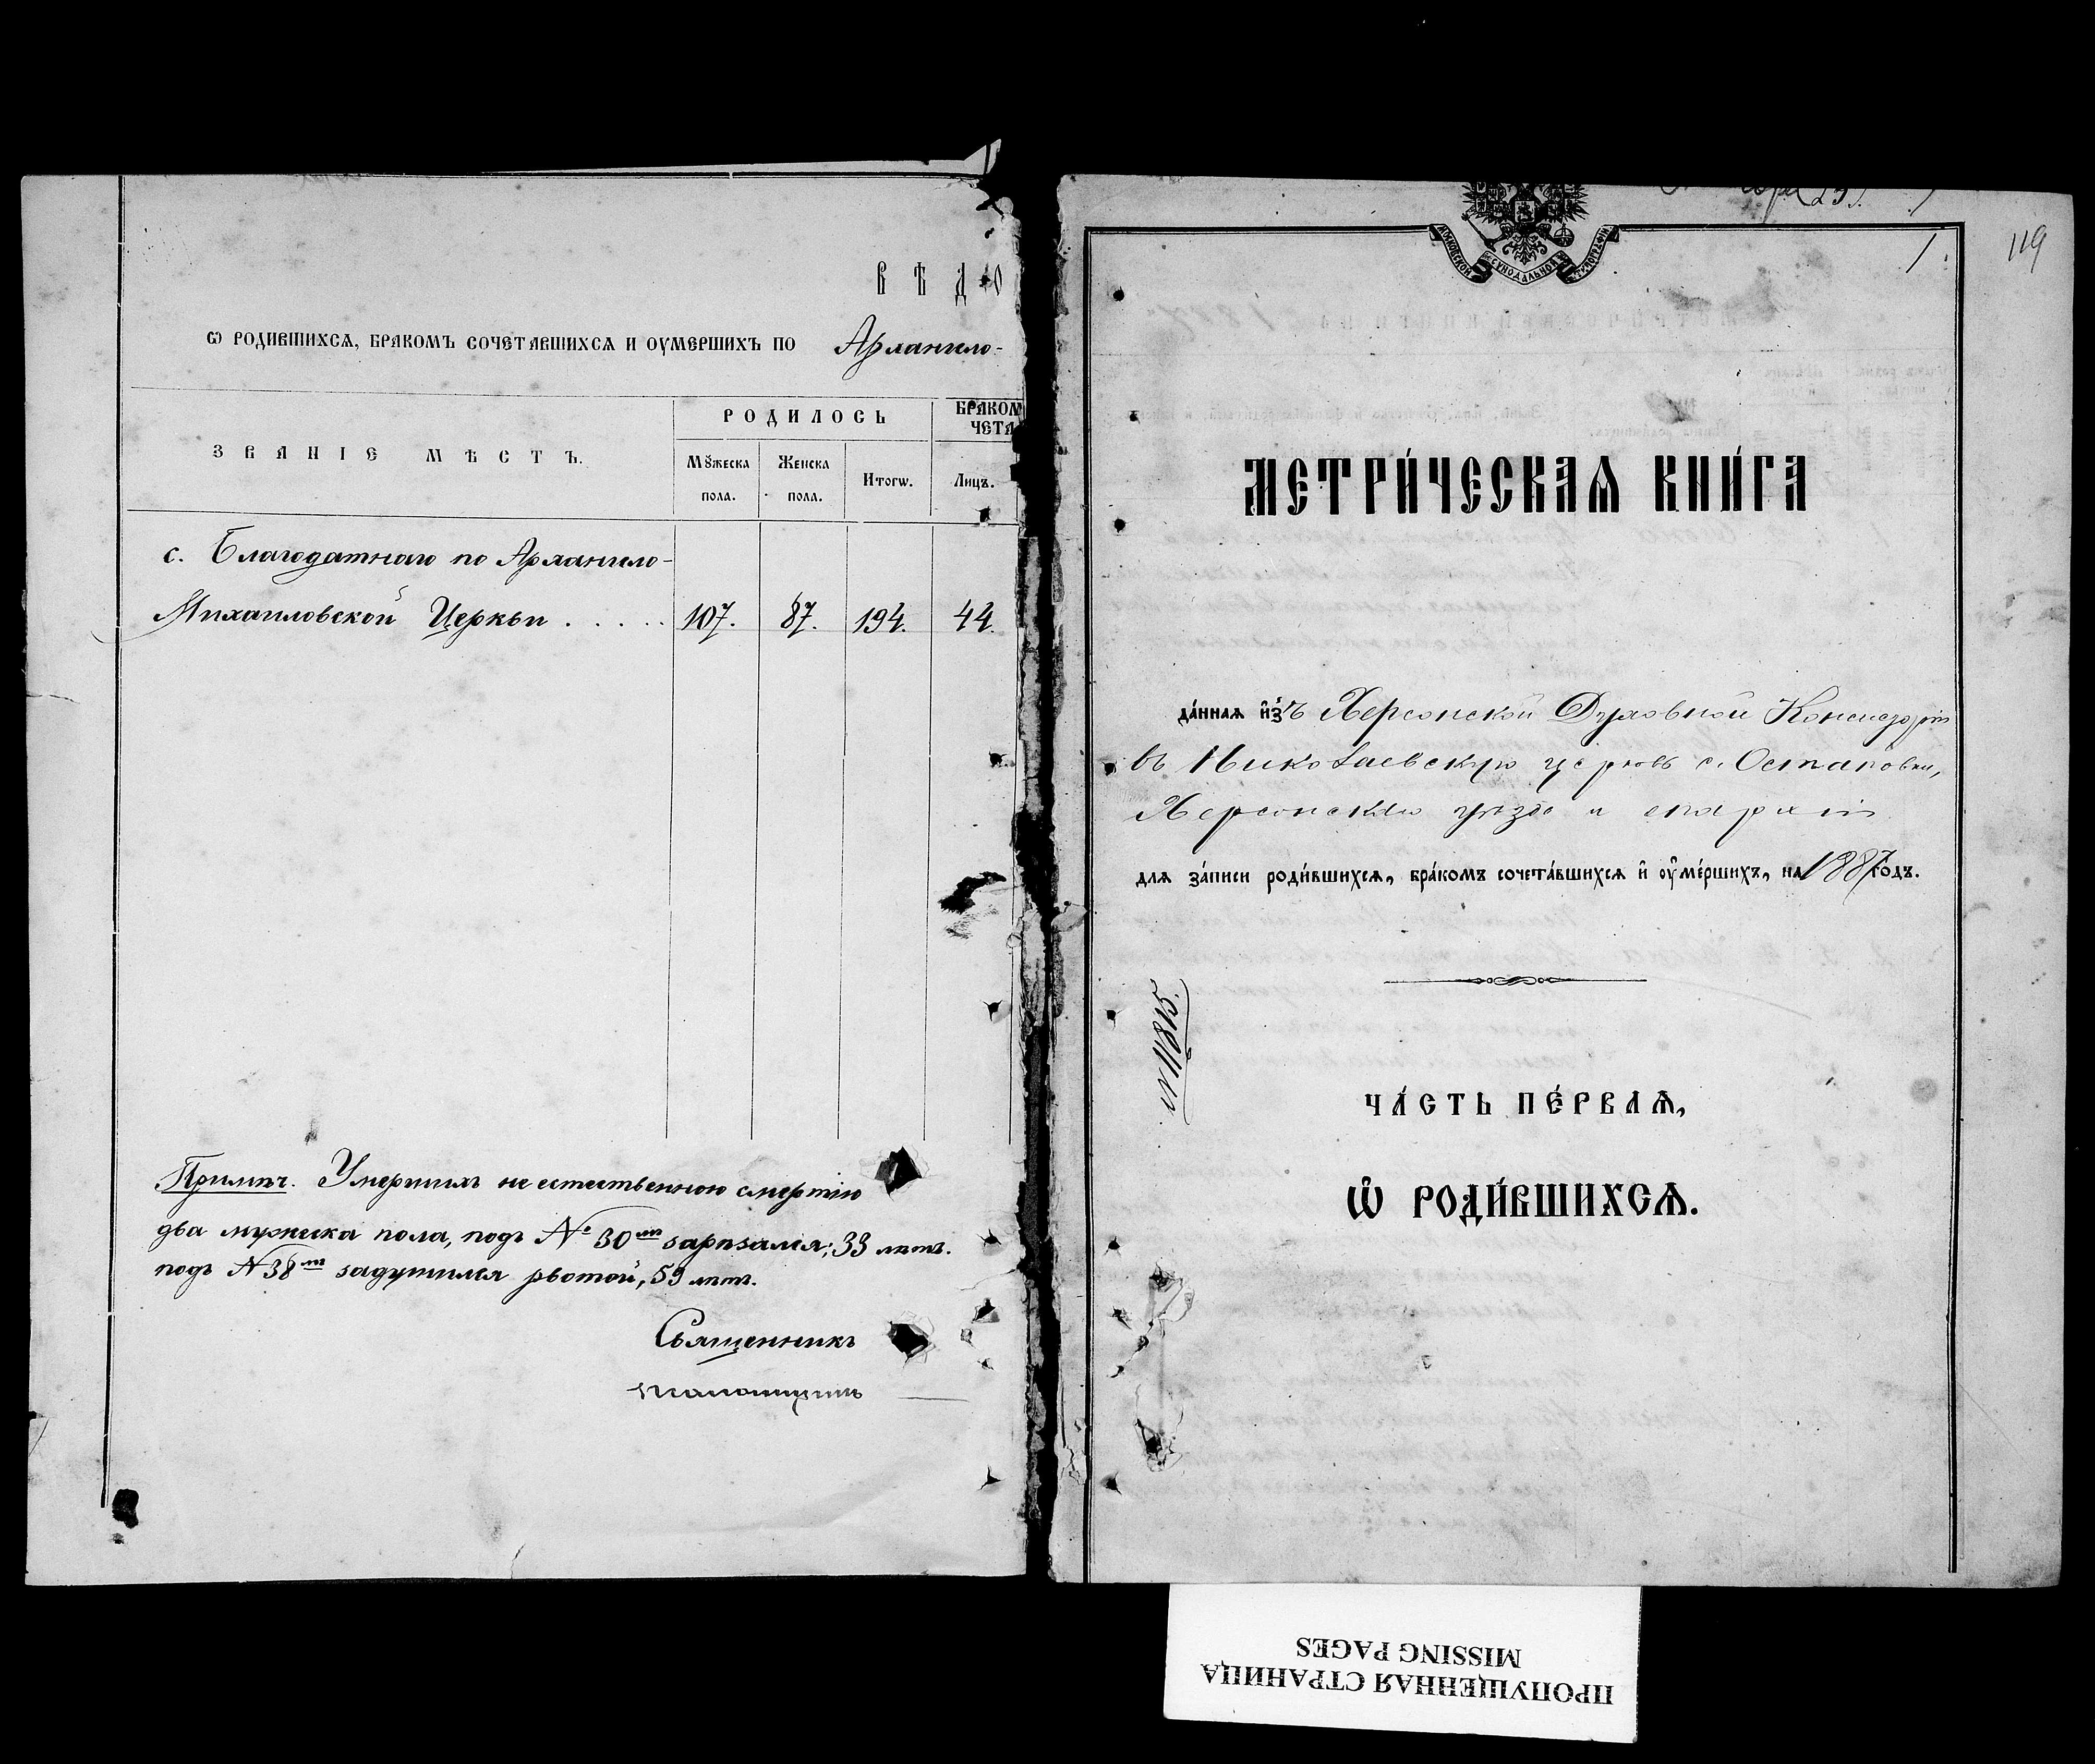 ВѢДО
Ѡ РОДИВШИХСѦ, БРАКОМЪ СОЧЕТАВШИХСѦ И ОУМЕРШИХЪ ПО Архангело-
ЗВАНІЕ МѢСТЪ.
РОДИЛОСЬ
БРАКОМ
ЧЕТА
Мꙋжеска пола.
Женска пола.
Итогѡ.
Лицъ.
с. Благодатнаго по Архангело-
Михайловской Церкви . . . . . 107. 87. 194. 44.
Примѣч. Умершихъ не естественною смертію
два мужеска пола, подъ № 30мъ зарѣзался; 33 лѣтъ.
подъ № 38мъ задушился рвотой, 59 лѣтъ.
Священникъ
МОСКОВСКОЙ СѴНОДАЛЬНОЙ ТѴПОГРАФІИ
1.
119
МЕТРИ́ЧЕСКАѦ КНИ́ГА
да́ннаѧ и҆зъ Херсонской Духовной Консисторіи
въ Николаевскую церковь с. Остаповки,
Херсонскаго уѣзда и епархіи
для за́писи роди́вшихсѧ, бра́комъ сочета́вшихсѧ и҆ оу҆ме́ршихъ, на 1887 годъ.
№ 11815.
ЧА́СТЬ ПЕ́РВАѦ,
Ѽ РОДИ́ВШИХСѦ.
ПРОПУЩЕННАЯ СТРАНИЦА
MISSING PAGES